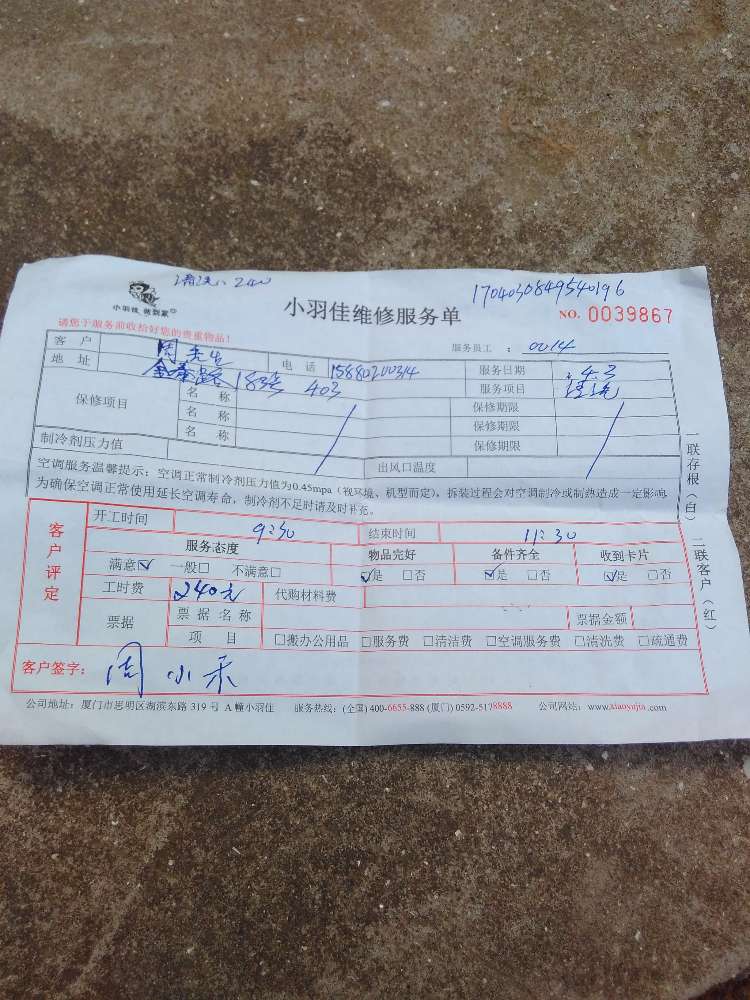 清洗 240
1704030849540196
小羽佳 做到家
小羽佳维修服务单
NO. 0039867
请您于服务前收拾好您的贵重物品!
服务员工 : 0014
客户 周先生 电话 15880200314 服务日期 4.3
地址 183号 403 服务项目 清洗
保修项目 名称 保修期限
名称 保修期限
名称 保修期限
制冷剂压力值 出风口温度
空调服务温馨提示:空调正常制冷剂压力值为0.45mpa(视环境、机型而定),拆装过程会对空调制冷或制热造成一定影响
为确保空调正常使用延长空调寿命,制冷剂不足时请及时补充。
一联存根(白) 二联客户(红)
客户评定
开工时间 9:30 结束时间 11:30
服务态度 物品完好 备件齐全 收到卡片
满意☑ 一般□ 不满意□ ☑是 □否 ☑是 □否 ☑是 □否
工时费 240元 代购材料费
票据 票据名称 票据金额
项目 □搬办公用品 □服务费 □清洁费 □空调服务费 □清洗费 □疏通费
客户签字: 周小禾
公司地址:厦门市思明区湖滨东路319号A幢小羽佳 服务热线:(全国)400-6655-888 (厦门)0592-5178888 公司网站:www.xiaoyujia.com